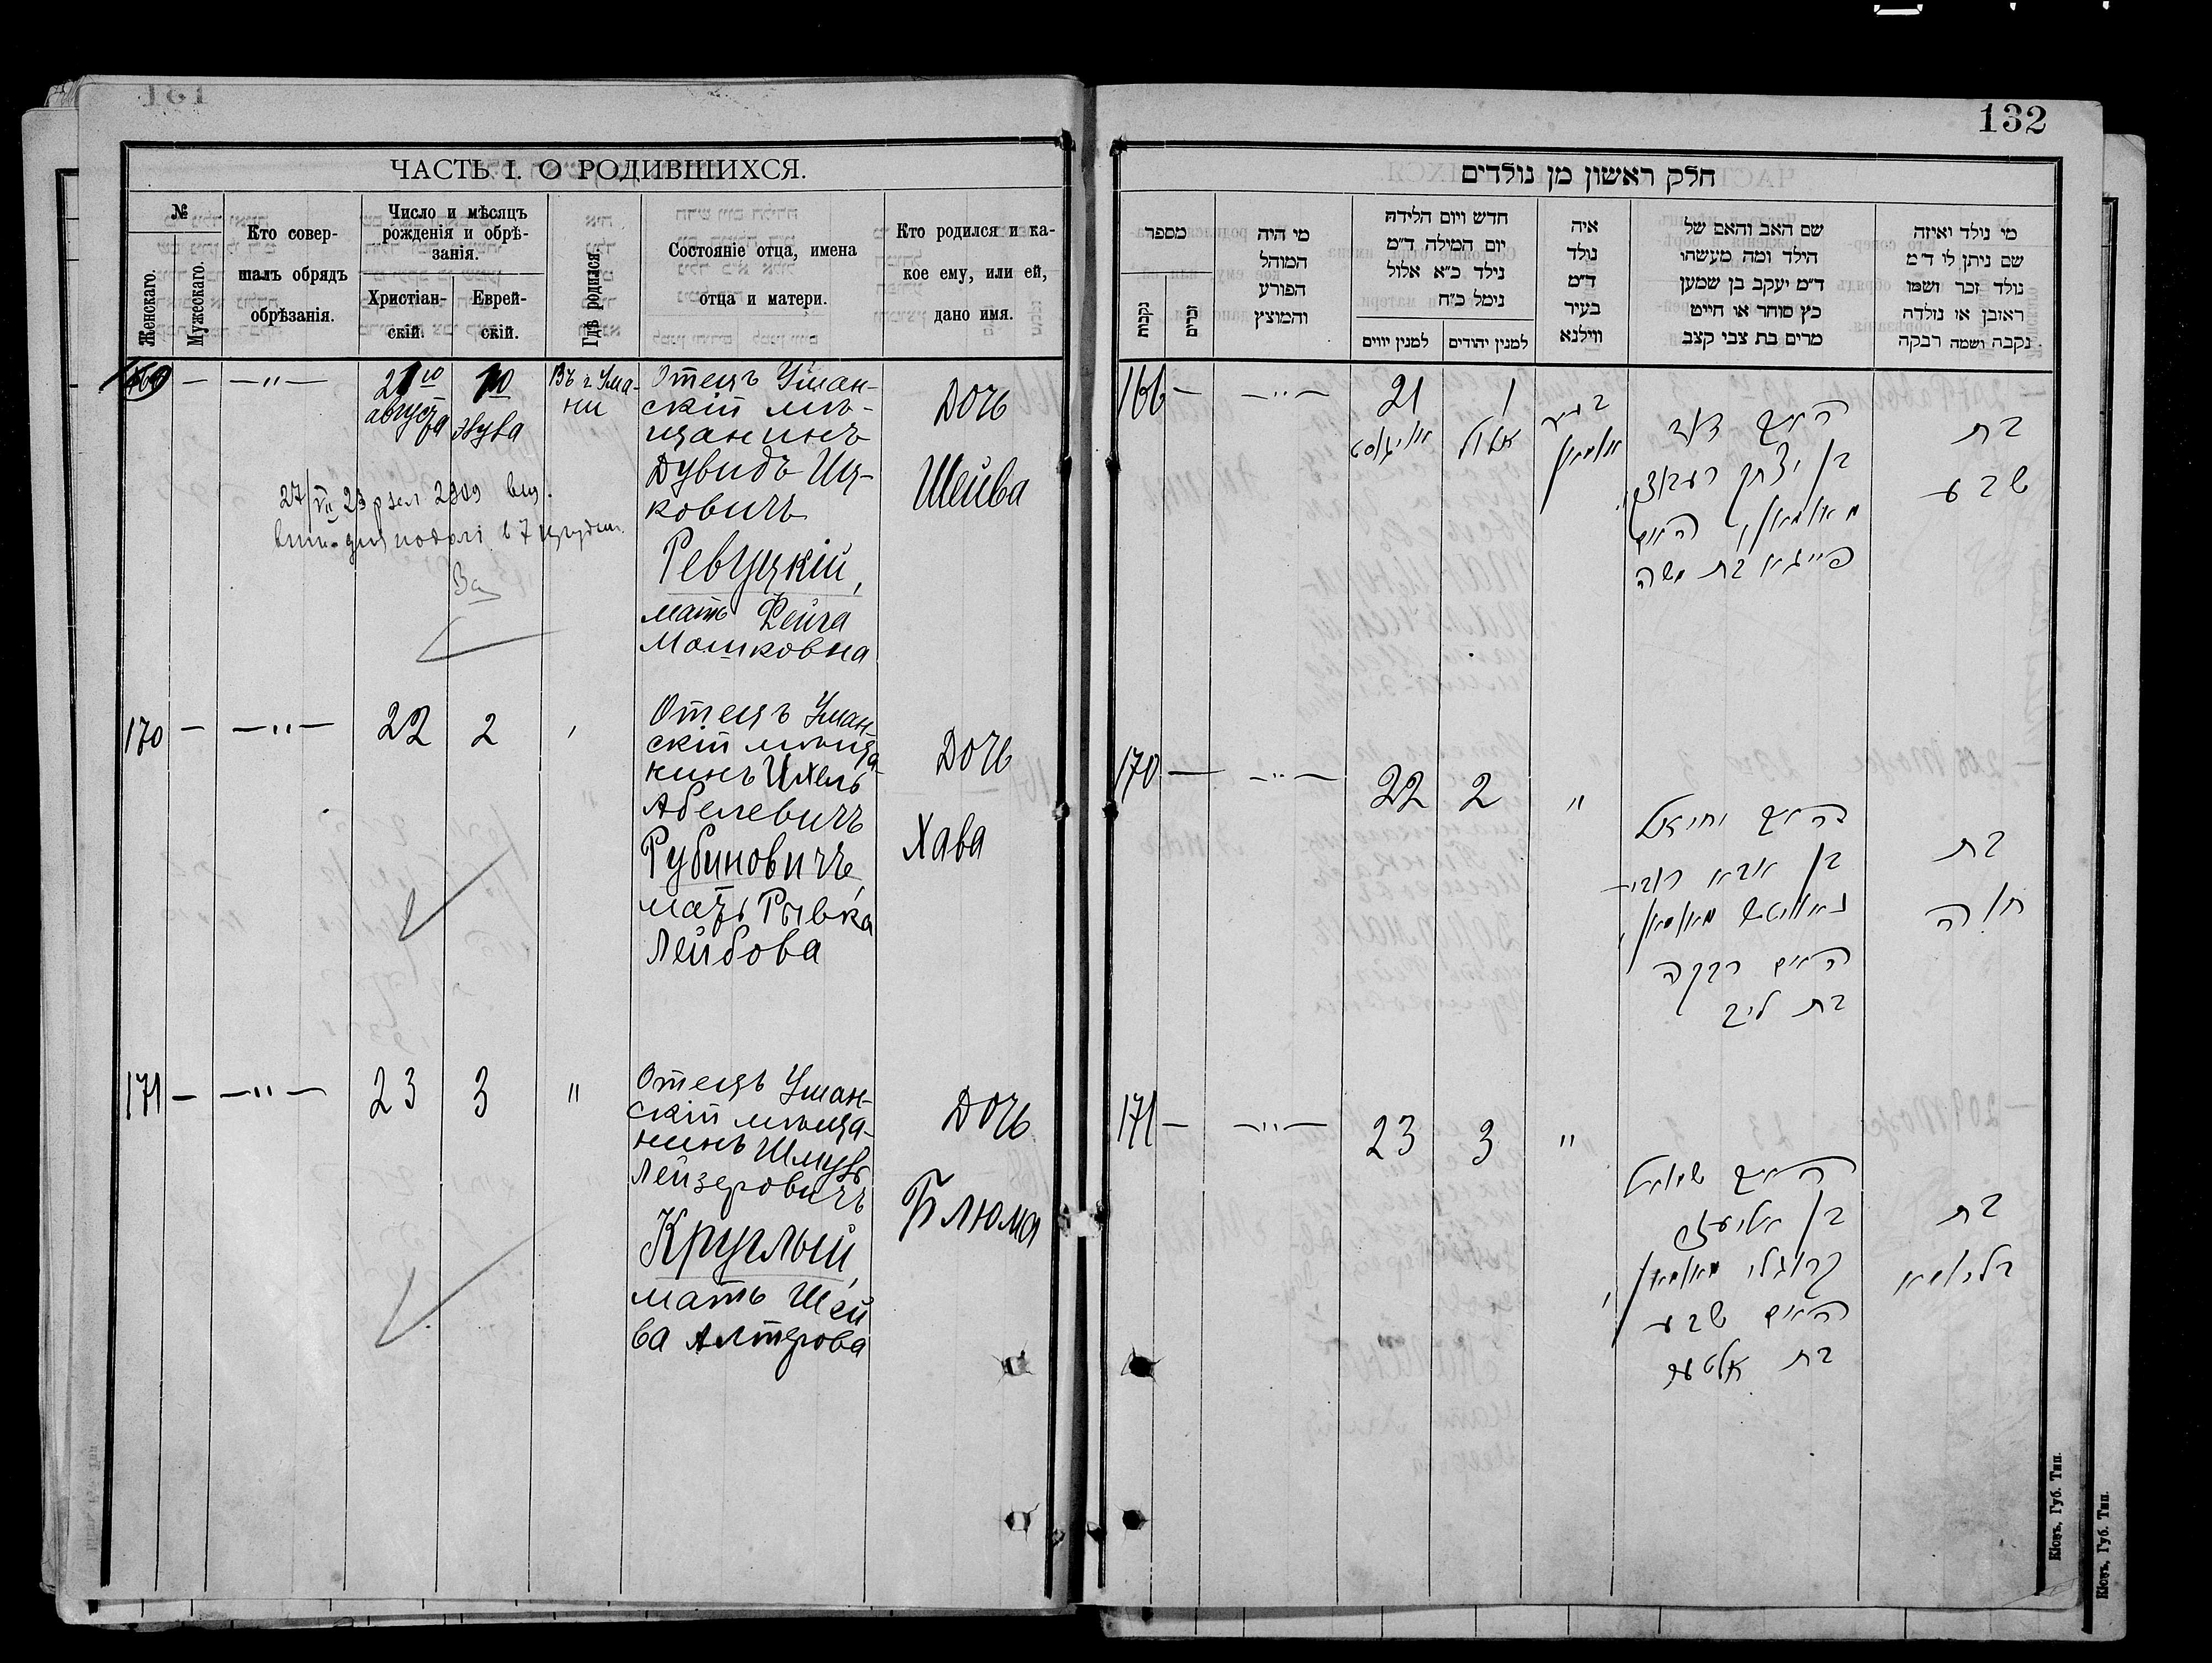 132
ЧАСТЬ I. О РОДИВШИХСЯ.
№
Женскаго.
Мужескаго.
Кто совер-
шалъ обрядъ
обрѣзанія.
Число и мѣсяцъ
рожденія и обрѣ-
занія.
Христіан-
скій.
Еврей-
скій.
Гдѣ родился.
Состояніе отца, имена
отца и матери.
Кто родился и ка-
кое ему, или ей,
дано имя.
169 — —"—
21го
августа
Въ г. Ума-
ни
Отецъ Уман-
скій мѣ-
щанинъ
Дувидъ Иц-
ковичъ
Ревуцкій,
мать Фейга
Мошковна
Дочь
Шейва
170 — —"— 22 2
Отецъ Уман-
скій мѣща-
нинъ Ихель
Абелевичъ
Рубиновичъ,
мать Рывка
Лейбова
Дочь
Хава
171 — —"— 23 3 "
Отецъ Уман-
скій мѣща-
нинъ Шмуль
Лейзеровичъ
Круглый,
мать Шей
ва Алтерова
Дочь
Блюма
חלק ראשון מן נולדים
מספר
נקבות
זכרים
מי היה
המוהל
הפורע
והמוצץ
חדש ויום הלידה
יום המילה ד"מ
נילד כ"א אלול
נימל כ"ח
למנין יווים
למנין יהודים
איה
נולד
ד"מ
בעיר
ווילנא
שם האב והאם של
הילד ומה מעשהו
ד"מ יעקב בן שמען
כץ סוחר או חייט
מרים בת צבי קצב
מי נולד ואיזה
שם ניתן לו ד"מ
נולד זכר ושמו
ראובן או נולדה
נקבה ושמה רבקה
— —"—
21
אויגוסט
1
אלול
בעיר
אומאן
האב דוד
בן יצחק רעוואצקי
מאומאן, האם
פייגא בת משה
בת
שבע
170 — —"— 22 2 "
האב יחיאל
בן אבא רובי-
נאוויטש מאומאן,
האם רבקה
בת ליב
בת
חוה
171 — —"— 23 3 "
האב שמואל
בן אליעזר
קרוגלי מאומאן,
האם שבע
בת אלטער
בת
בליומא
Кіевъ, Губ. Тип.
Кіевъ, Губ. Тип.